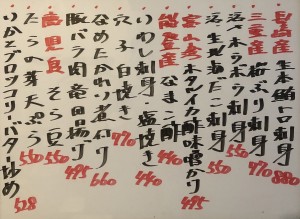 長崎産 生本鮪トロ刺身 880
三重産 岩ぶり刺身 770
活〆ホウボウ刺身 550
活〆生鳥貝たこ刺身 550
富山産 ホタルイカ酢味噌かけ 495
能登産 なまこ酢 440
いわし刺身・塩焼き 440
穴子白焼き 770
なめたかれい煮付け 660
豚バラ肉竜田揚げ 495
鹿児島 そら豆 550
たらの芽天ぷら 550
いかとブロッコリーバター炒め 528